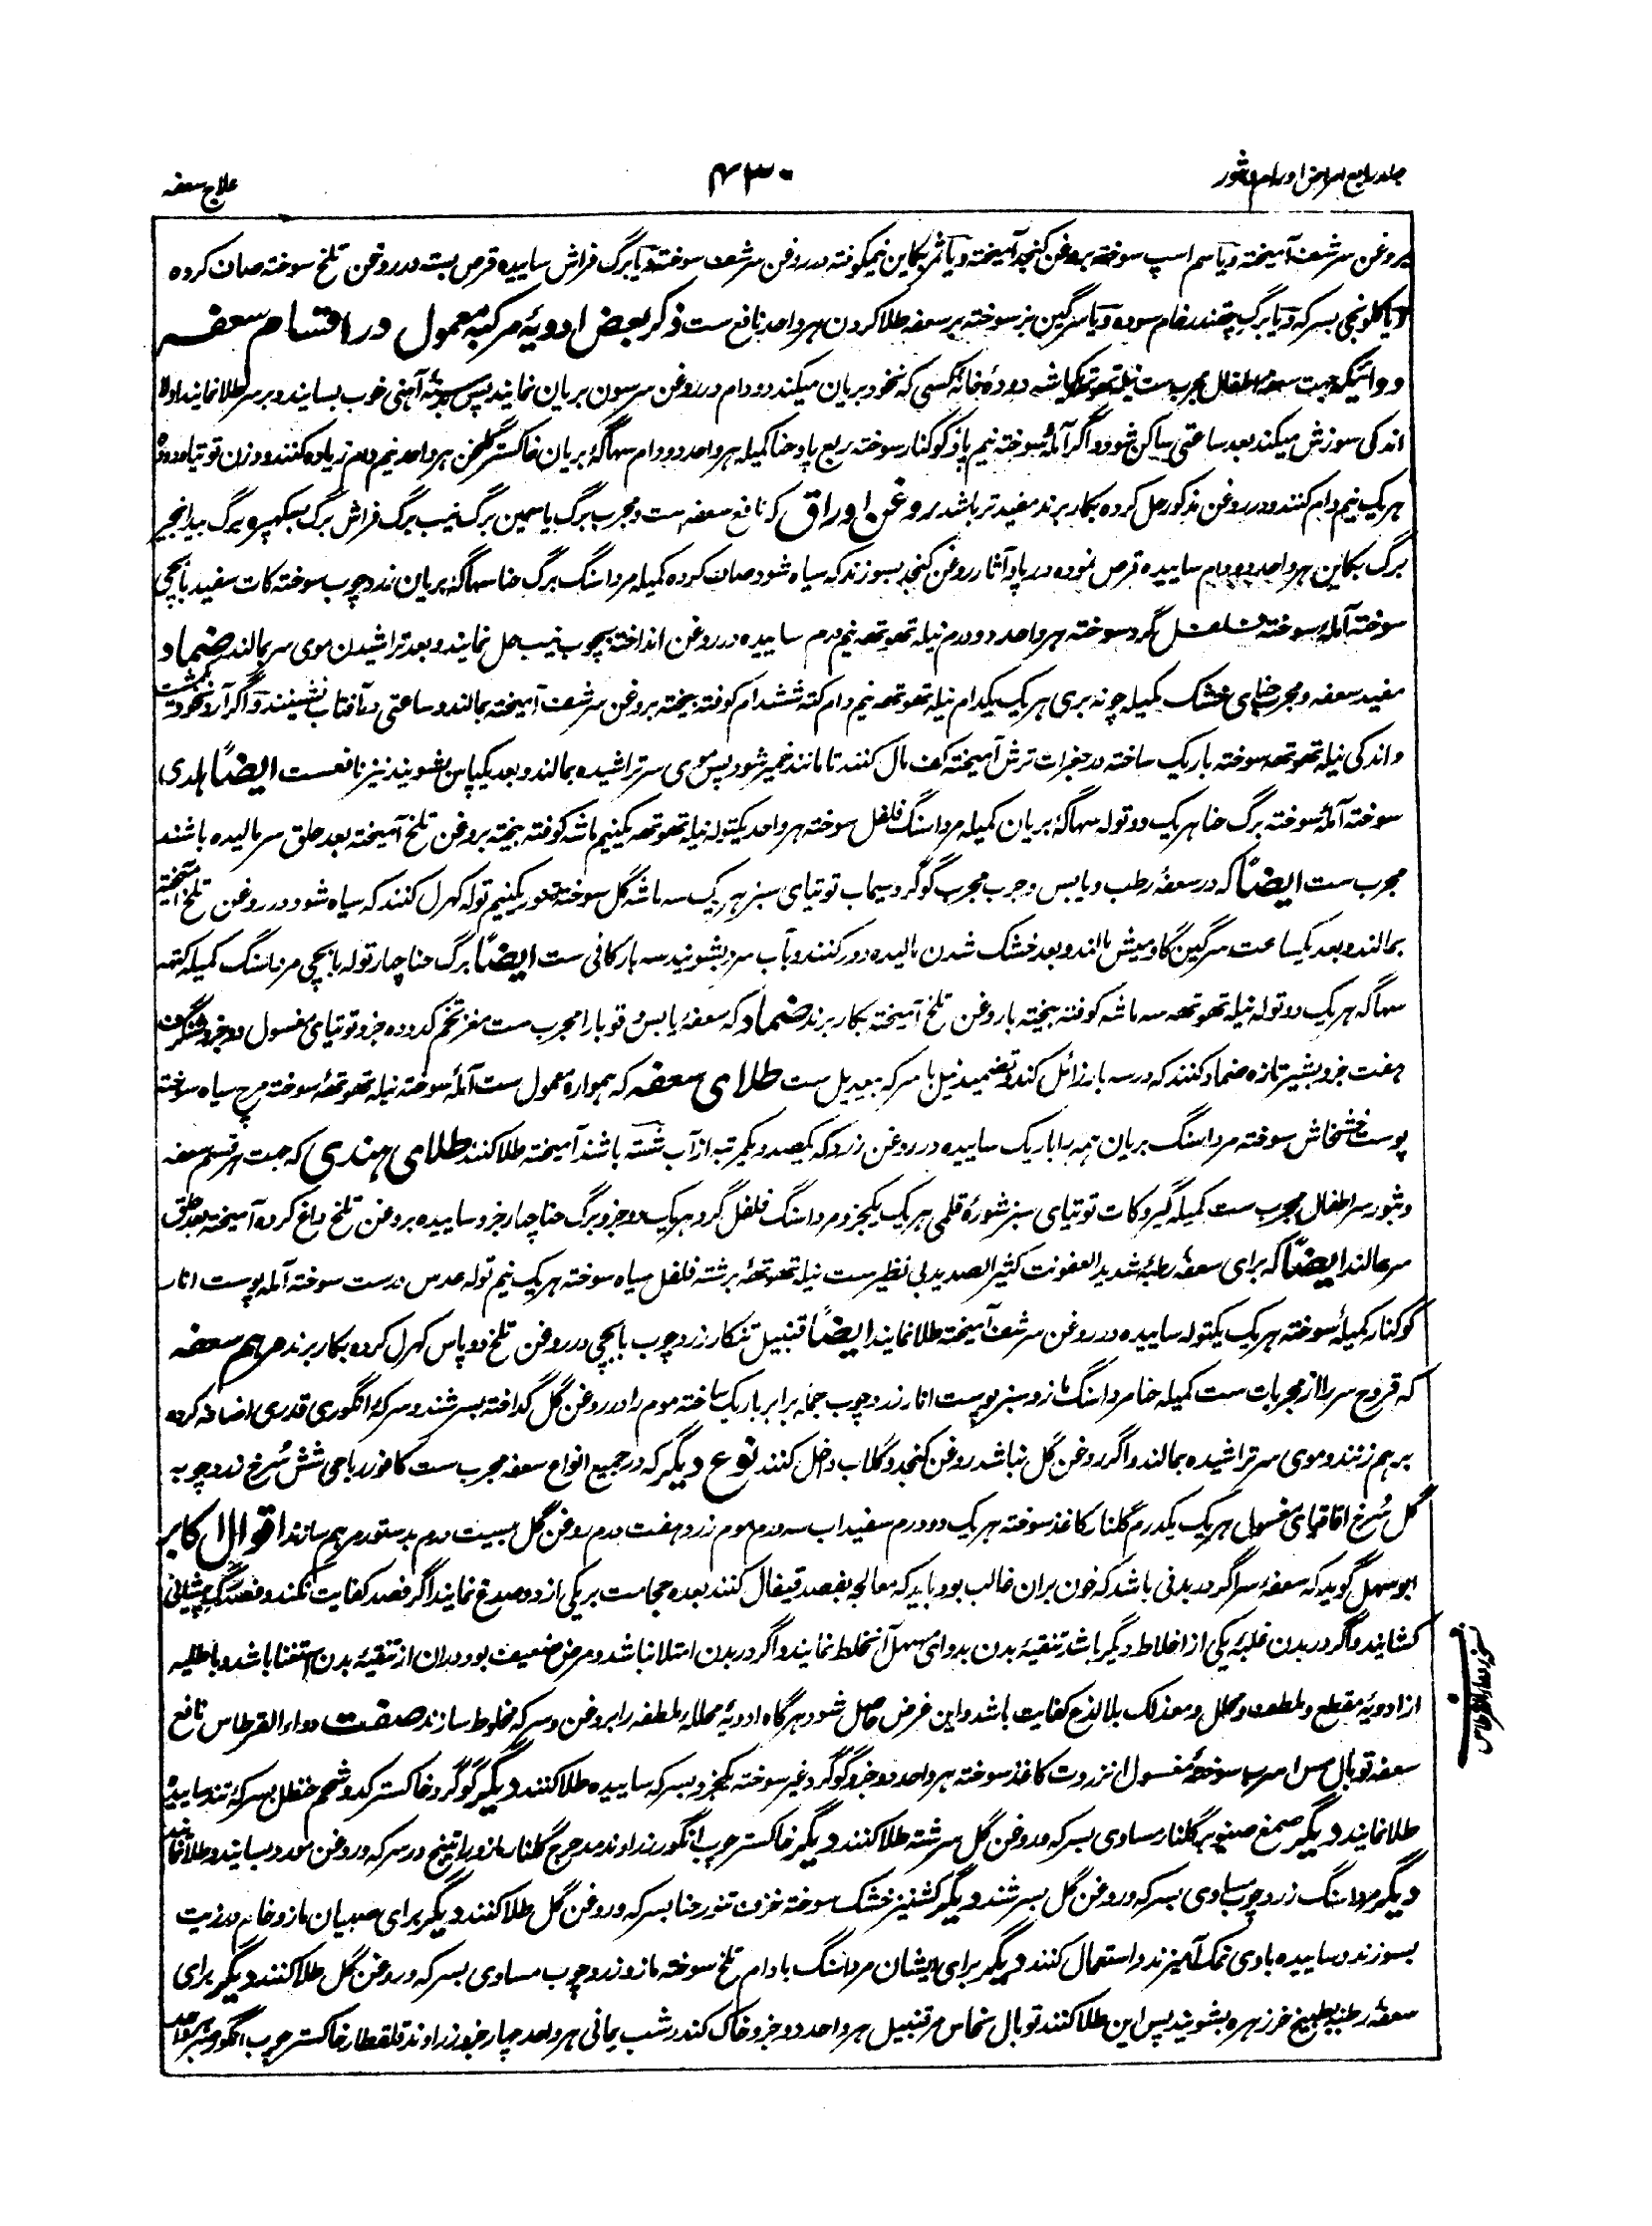 جلد رابع امراض اورام و بثور
۴۳۰
علاج سعفه
بروغن سرشف آمیخته و یا سم اسپ سوخته بروغن کنجد آمیخته و یا ثمر بکاین نیمکوفته در روغن سرشف سوخته و یا برگ فراش ساییده قرص بسته در روغن تلخ سوخته صاف کرده
و یا کلونجی بسرکه و یا برگ چقندر خام سوده و یا سرگین بز سوخته بر سعفه طلا کردن هر واحد نافع ست ذکر بعض ادویهٔ مرکبه معمول در اقسام سعفه
دوائیکه جهت سعفهٔ اطفال مجرب ست نیله تهوتهه یکماشه دودهٔ خانهٔ کسی که نخود بریان میکند دو دام در روغن سرسون بریان نمایند پس بدستهٔ آهنی خوب بسایند و بر سر طلا نمایند اولا
اندکی سوزش میکند بعد ساعتی ساکن شود و اگر آملهٔ سوخته نیم پاو کوکنار سوخته ربع پاو حنا کمیله هر واحد دو دام سهاگهٔ بریان خاکستر گلخن هر واحد نیم دام زیاده کنند و وزن توتیا و دوده
هر یک نیم دام کنند و در روغن مذکور حل کرده بکار برند مفید تر باشد روغن اوراق که نافع سعفه ست و مجرب برگ یاسمین برگ نیب برگ فراش برگ بهکپره برگ بیدانجیر
برگ بکاین هر واحد دو دام ساییده قرص نموده در پاو آثار روغن کنجد بسوزند که سیاه شود صاف کرده کمیله مرداسنگ برگ حنا سهاگهٔ بریان زردچوب سوخته کات سفید بابچی
سوخته آملهٔ سوخته فلفل گرد سوخته هر واحد دو درم نیله تهوتهه نیم درم ساییده در روغن انداخته بچوب نیب حل نمایند و بعد تراشیدن موی سر بمالند ضماد
مفید سعفه و مجرب حنای خشک کمیله چونه بری هر یک یکدام نیله تهوتهه نیم دام کته ششدام کوفته بیخته بروغن سرشف آمیخته بمالند و ساعتی در آفتاب نشینند و اگر آرد نخود هشت
و اندکی نیله تهوتهه سوخته باریک ساخته در جغرات ترش آمیخته کف مال کنند تا مانند خمیر شود پس موی سر تراشیده بمالند و بعد یکپاس بشویند نیز نافعست ایضاً هلدی
سوخته آملهٔ سوخته برگ حنا هر یک دو توله سهاگهٔ بریان کمیله مرداسنگ فلفل سوخته هر واحد یکتوله نیله تهوتهه یکنیم ماشه کوفته بیخته بروغن تلخ آمیخته بعد حلق سر مالیده باشند
مجرب ست ایضاً که در سعفهٔ رطب و یابس و جرب مجرب گوگرد سیماب توتیای سبز هر یک سه ماشه گل سوختهٔ تنور یکنیم توله کهرل کنند که سیاه شود در روغن تلخ آمیخته
بمالند و بعد یکساعت سرگین گاومیش مالند و بعد خشک شدن مالیده دور کنند و بآب سرد بشویند سه بار کافی ست ایضاً برگ حنا چار توله بابچی مرداسنگ کمیله کته
سهاگه هر یک دو توله نیله تهوتهه سه ماشه کوفته بیخته با روغن تلخ آمیخته بکار برند ضماد که سعفهٔ یابس و قوبا را مجرب ست مغز تخم کدو ده جزو توتیای مغسول دو جزو شنگرف
هفت جزو بشیر تازه ضماد کنند که در سه بار زائل کند و تضمید نیل با سرکه بیعدیل ست طلای سعفه که همواره معمول ست آملهٔ سوخته نیله تهوتههٔ سوخته مرچ سیاه سوخته
پوست خشخاش سوخته مرداسنگ بریان همه را باریک ساییده در روغن زرد که یکصد و یکمرتبه از آب شسته باشند آمیخته طلا کنند طلای هندی که جهت هر قسم سعفه
و بثور سر اطفال مجرب ست کمیله گیرو کات توتیای سبز شورهٔ قلمی هر یک یکجزو مرداسنگ فلفل گرد هر یک دو جزو برگ حنا چهار جزو ساییده بروغن تلخ داغ کرده آمیخته بعد حلق
سر مالند ایضاً که برای سعفهٔ رطبهٔ شدید العفونت کثیر الصدید بی نظیر ست نیله تهوتههٔ برشته فلفل سیاه سوخته هر یک نیم توله عدس درست سوخته آمله پوست انار
کوکنار کمیلهٔ سوخته هر یک یکتوله ساییده در روغن سرشف آمیخته طلا نمایند ایضاً قنبیل تنکار زردچوب بابچی در روغن تلخ دو پاس کهرل کرده بکار برند مرهم سعفه
که قروح سر را از مجربات ست کمیله حنا مرداسنگ مازو سبز پوست انار زردچوب جمله برابر باریک ساخته موم را در روغن گل گداخته بسرشند و سرکهٔ انگوری قدری اضافه کرده
برهم زنند و موی سر تراشیده بمالند و اگر روغن گل نباشد روغن کنجد و گلاب داخل کنند نوع دیگر که در جمیع انواع سعفه مجرب ست کافور رباحی شش سُرخ زردچوبه
گل سُرخ اقاقیای مغسول هر یک یکدرم گلنار کاغذ سوخته هر یک دو درم سفیداب سه درم موم زرد هفت درم روغن گل بیست درم بدستور مرهم سازند اقوال اکابر
ابو سهل گوید که سعفهٔ سر اگر در بدنی باشد که خون بران غالب بود باید که معالجه بفصد قیفال کنند بعده حجامت بر یکی از دو صدغ نمایند اگر فصد کفایت نکند و فصد رگ پیشانی
کشایند و اگر در بدن غلبهٔ یکی از اخلاط دیگر باشد تنقیهٔ بدن بدوای مسهل آن خلط نمایند و اگر در بدن امتلا نباشد و مرض ضعیف بود دران از تنقیهٔ بدن استغنا باشد و با طلیه
از ادویهٔ مقطع و ملطف و محلل و معذلک بلا لذع کفایت باشد و این غرض حاصل شود هرگاه ادویهٔ محلله ملطفه را بروغن و سرکه مخلوط سازند صفت دواء القرطاس نافع
سعفه توبال مس اسرب سوختهٔ مغسول انزروت کاغذ سوخته هر واحد دو جزو گوگرد غیر سوخته یکجزو بسرکه ساییده طلا کنند دیگر گوگرد خاکستر کدو شحم حنظل بسرکهٔ تند ساییده
طلا نمایند دیگر صمغ صنوبر گلنار مساوی بسرکه و روغن گل سرشته طلا کنند دیگر خاکستر چوب انگور زراوند مدحرج گلنار مازو راتینج در سرکه و روغن مورد بسایند و طلا نمایند
دیگر مرداسنگ زردچوب مساوی بسرکه و روغن گل بسرشند دیگر کشنیز خشک سوخته خزف تنور حنا بسرکه و روغن گل طلا کنند دیگر برای صبیان مازو خام در زیت
بسوزند و ساییده با وی نمک آمیزند و استعمال کنند دیگر برای ایشان مرداسنگ بادام تلخ سوخته مازو زردچوب مساوی بسرکه و روغن گل طلا کنند دیگر برای
سعفهٔ رطبه بطبیخ خرزهره بشویند پس این طلا کنند توبال نحاس مر قنبیل هر واحد دو جزو خاک کندر شب یمانی هر واحد چار جزو زراوند قلقطار خاکستر چوب انگور صبر هر واحد